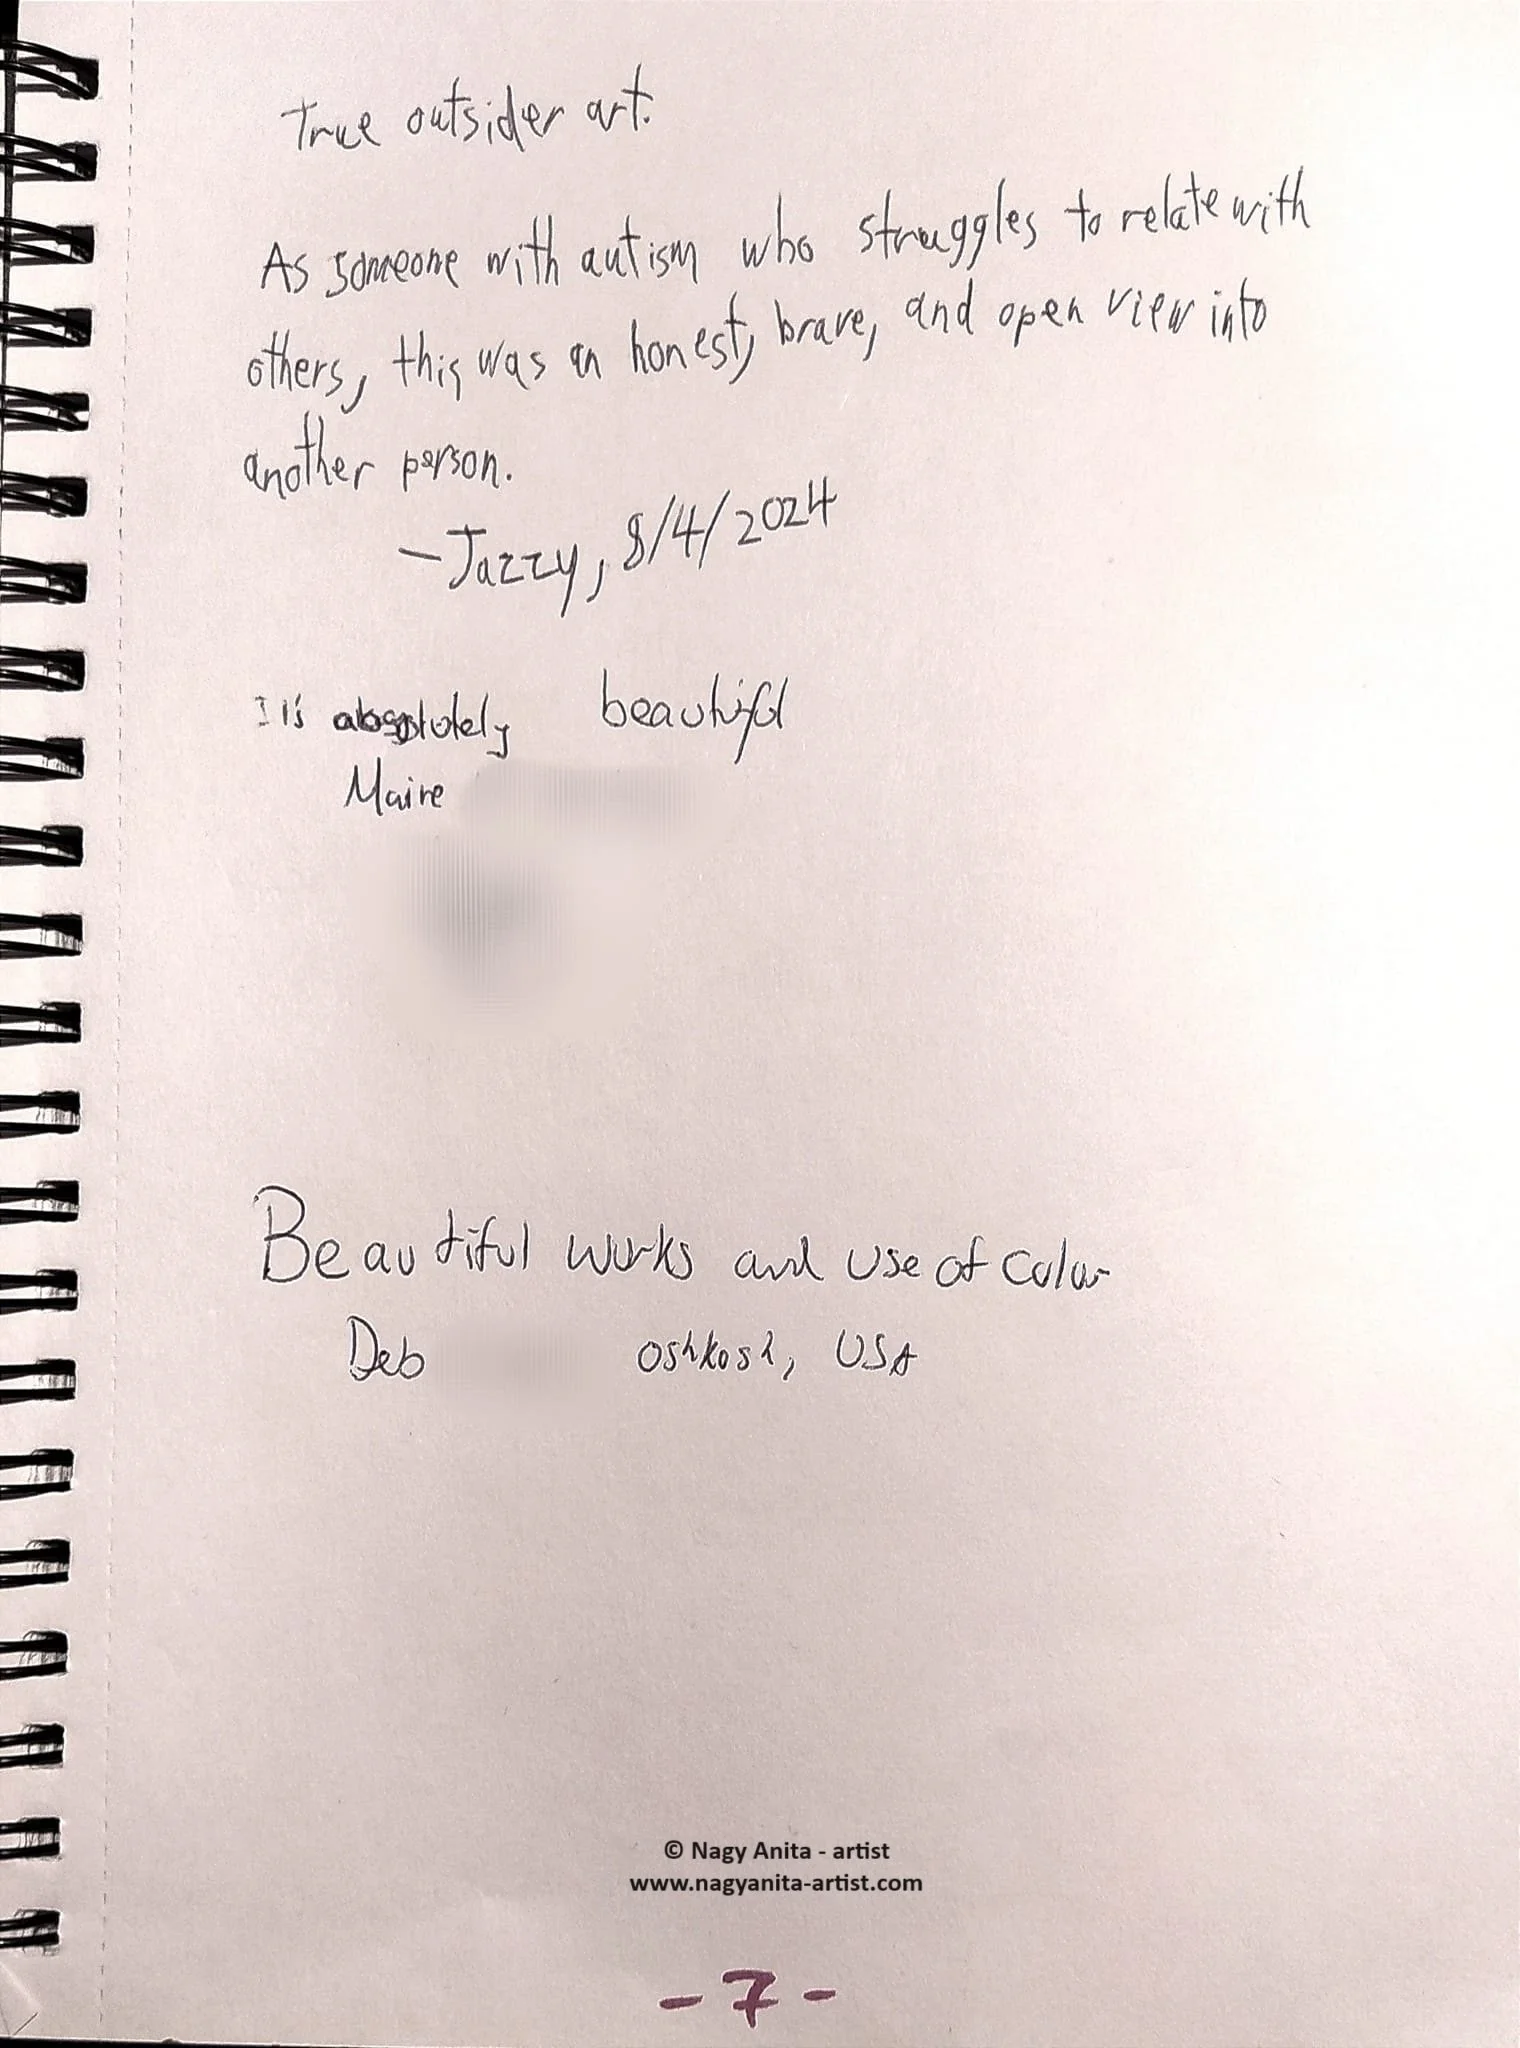 True outsider art.
As someone with autism who struggles to relate with
others, this was an honest, brave, and open view into
another person.
– Jazzy, 8/4/2024
absolutely beautiful
Maire
Beautiful works and use of color
Deb Oshkosh, USA
© Nagy Anita - artist
www.nagyanita-artist.com
- 7 -